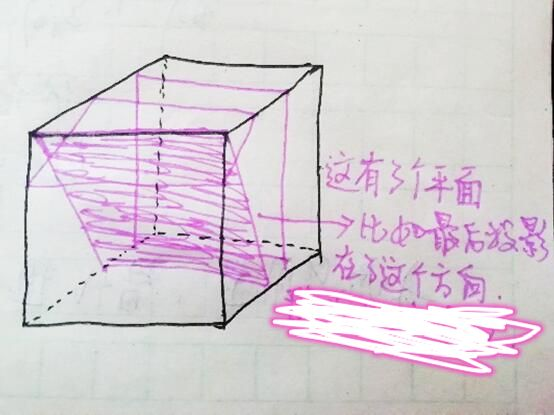 这有3个平面
比如最后投影
在了这个方向.